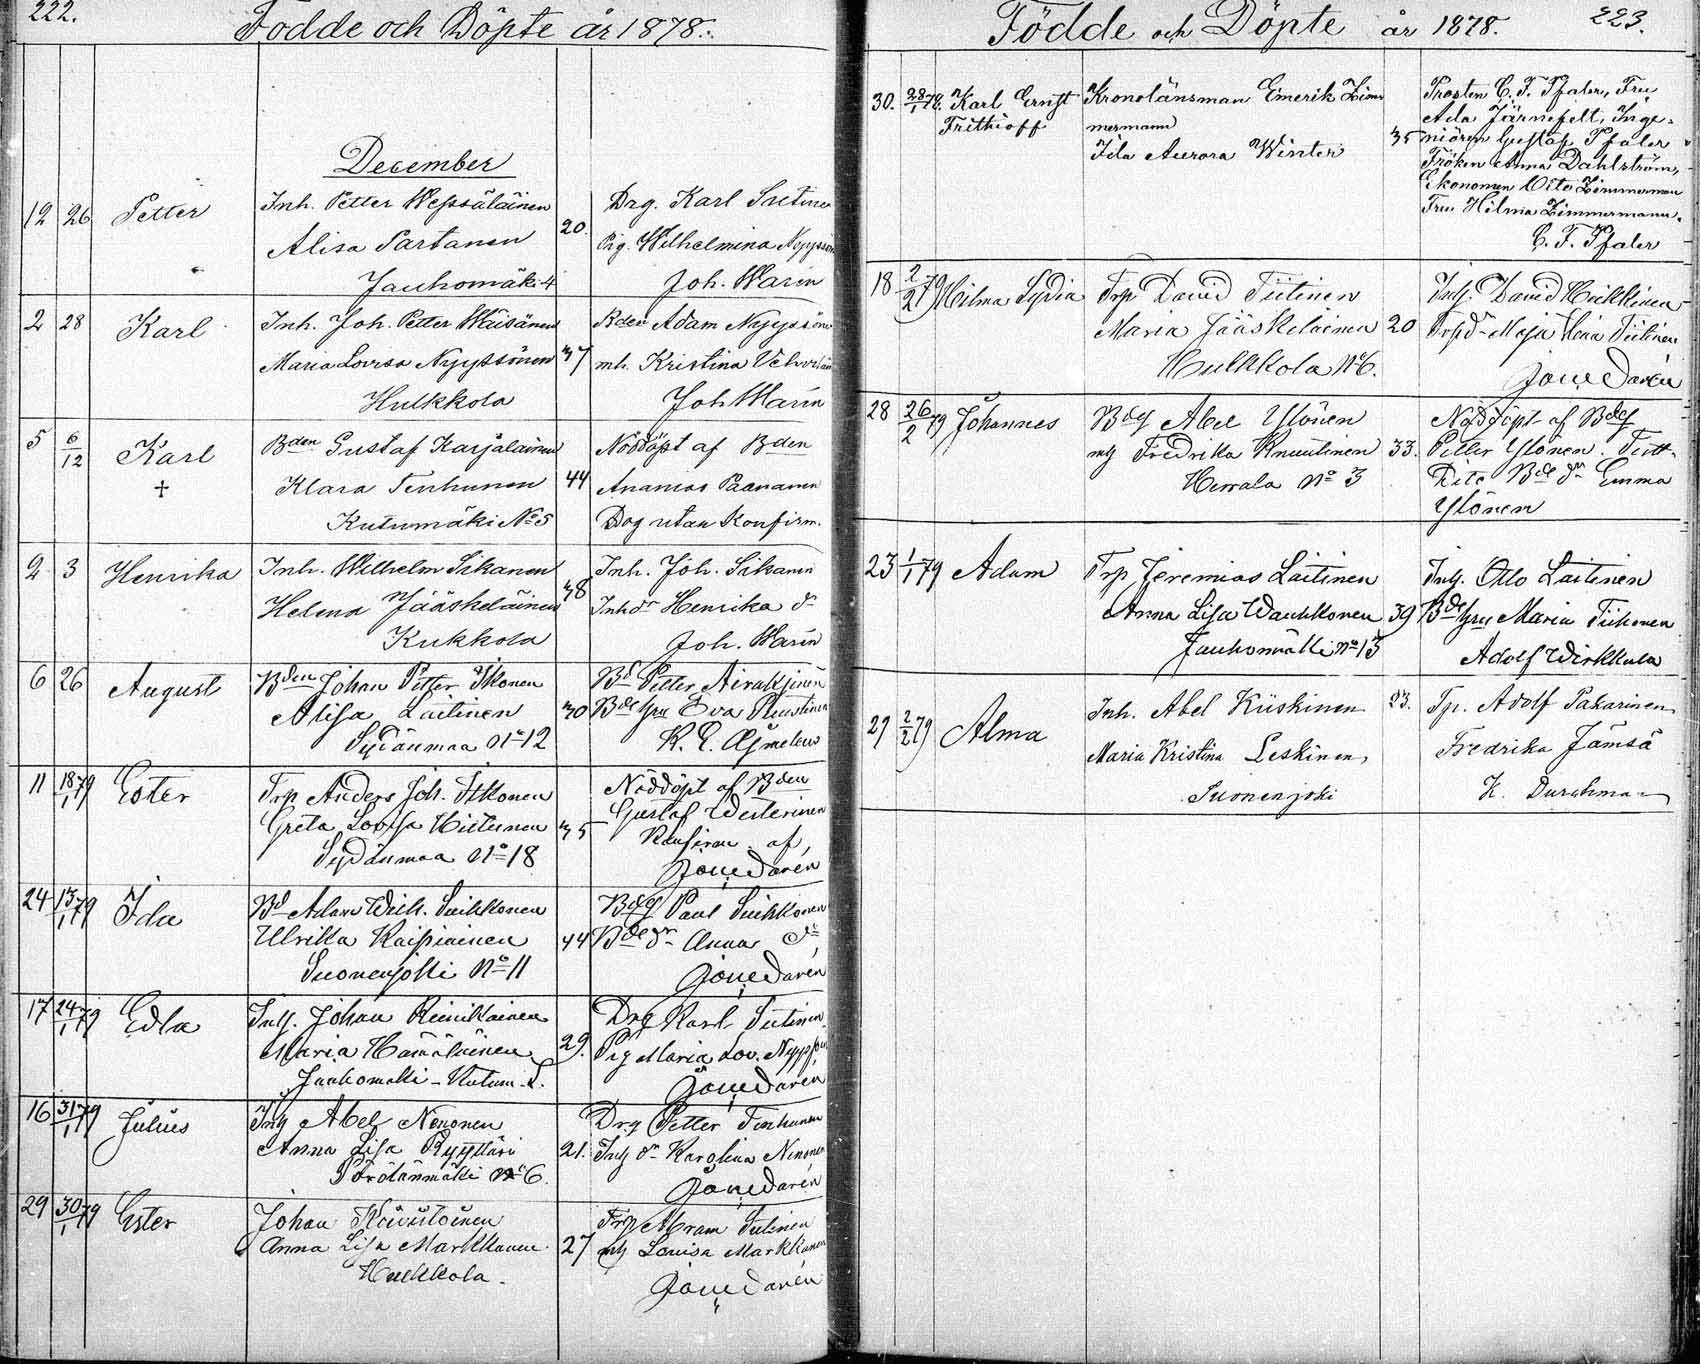 222.
Födde och Döpte år 1878.
December
12 26 Petter Inh. Petter Wepsäläinen Drg. Karl Sutinen
Alisa Partanen 20. Pig. Wilhelmina Nyyssönen
Jauhomäki 4 Joh. Warén
2 28 Karl Inh. Joh. Petter Wäisänen Bden Adam Nyyssönen
Maria Lovisa Nyyssönen 37 mh. Kristina
Hulkkola Joh Warén
5 6/12 Karl Bden Gustaf Karjalainen Nöddöpt af Bden
+ Klara Tenhunen 44 Ananias Paananen
Kutumäki No 5 Dog utan Konfirm.
2 3 Henrika Inh. Wilhelm Sikanen Inh. Joh. Sikanen
Helena Jääskeläinen 38 Inhdr Henrika dr
Kukkola Joh. Warén
6 26 August Bden Johan Petter Ikonen Bd Petter Airaksinen
Alisa Laitinen 30 Bde hru Eva Puustinen
Sydänmaa No 12 K. E. Asmelew
11 18/1 79 Ester Trp Anders Joh. Itkonen Nöddöpt af Bden
Greta Lovisa Hiltunen 35 Gustaf Westerinen
Sydänmaa No 18 Konfirm. af
Dorén
24 13/1 79 Ida Bd Adam Wilh. Suihkonen Bdeg Paul Suihkonen
Ulrikka Kaipiainen 44 Bde dr Anna dr
Suonenjoki No 11 Dorén
17 24/1 79 Edla Inhs. Johan Rinnikainen Drg Karl Sutinen
Maria Hämäläinen 29. Pig Maria Lov. Nyyssönen
Jauhomäki - Kutum. L. Dorén
16 31/1 79 Julius Inh Abel Nenonen Drg Petter Tenhunen
Anna Lisa Ryytläri 21. Inh dr Karolina Ninonen
Pörölänmäki No 6 Dorén
29 30/1 79 Ester Johan Koivistoinen Trp Abram Sutinen
Anna Lisa Markkanen 27 mh Lovisa Markkanen
Hulkkola. Dorén
Födde och Döpte år 1878. 223.
30. 28/1 79. Karl Ernst Kronolänsman Emerik Zim- Prosten C. F. Pfaler, Fru
Frithioff mermann Ada Järnefelt, Inge-
Ida Aurora Winter 35 niören Gustaf Pfaler
Fröken Anna Dahlström,
Ekonomen Otto Zimmerman
Fru Hilma Zimmermann.
C. F. Pfaler
18 2/2 79 Hilma Lydia Trp David Tiitinen Inh. David Heikkinen
Maria Jääskeläinen 20 Trp dr Maja Lena Tiitinen
Hulkkola No 6. Dorén
28 26/2 79 Johannes Bdeg Abel Ylönen Nöddöpt af Bdeg
mh Fredrika Knuutinen 33. Petter Ylönen. Testt.
Herrala No 3 Dito Bde dr Emma
Ylönen
23 1/1 79 Adam Trp Jeremias Laitinen Inh. Otto Laitinen
Anna Lisa Wauhkonen 39 Bde hru Maria Tiihonen
Jauhomäki No 13 Adolf Wirkkula
29 2/2 79 Alma Inh. Abel Kiiskinen 23. Tp. Adolf Pakarinen
Maria Kristina Leskinen, Fredrika Jämsä
Suonenjoki K. Durchman